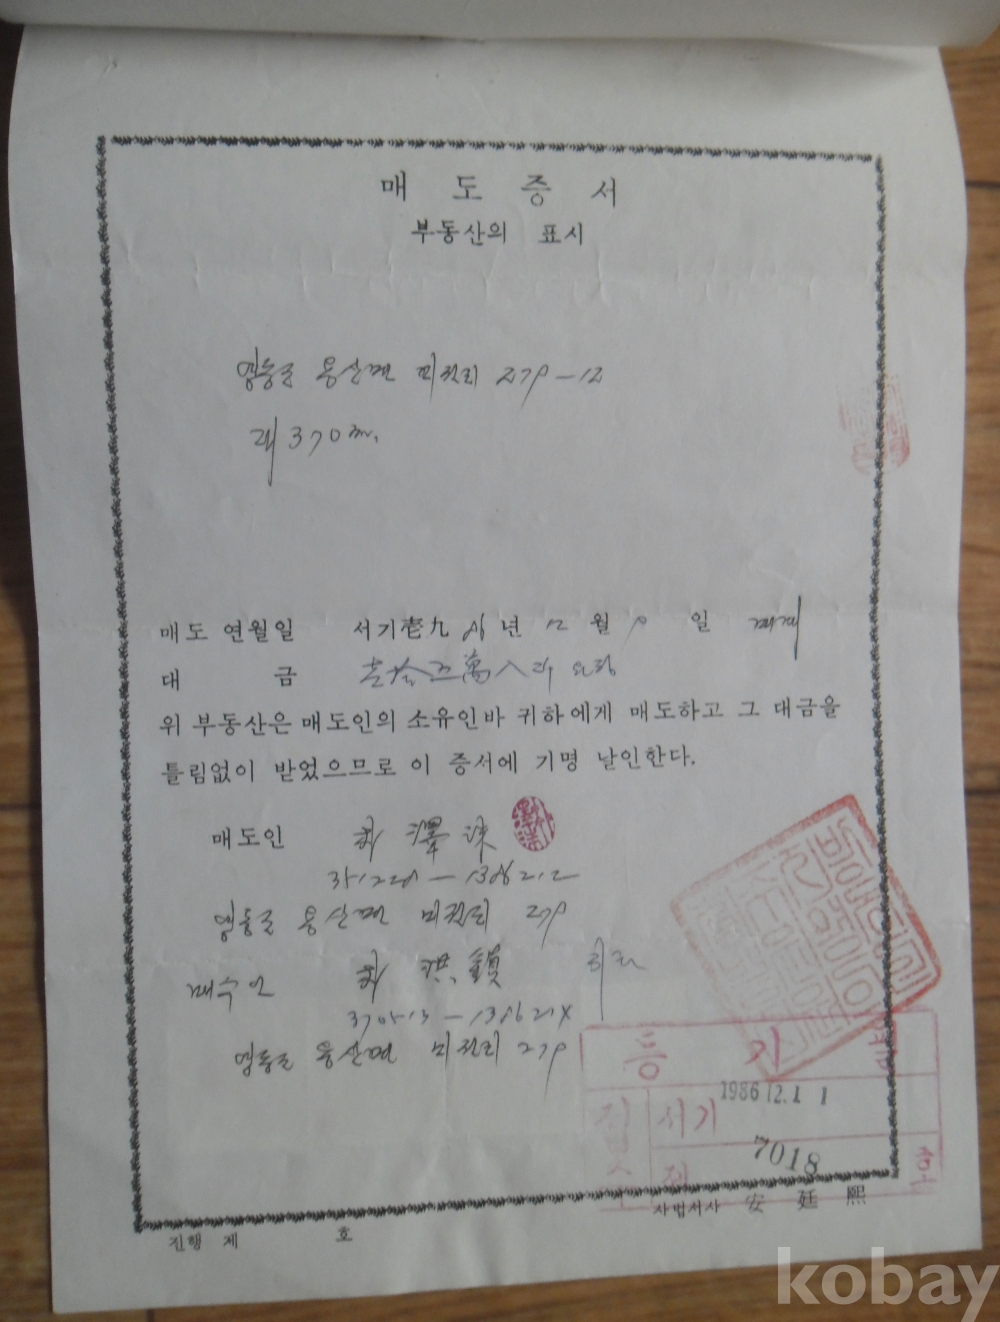 매 도 증 서
부동산의 표시
영동군 용산면 미전리 279-12
대 370㎡.
매도 연월일 서기壱九86년 12월 9일
대 금 壹拾五萬
위 부동산은 매도인의 소유인바 귀하에게 매도하고 그 대금을
틀림없이 받었으므로 이 증서에 기명 날인한다.
매도인 澤
영동군 용산면 미전리 279
매수인 洪
영동군 용산면 미전리 279
등 기
1986 12. 1 1
접수 서기
7018
제 호
사법서사 安 廷 熙
진행 제 호
kobay